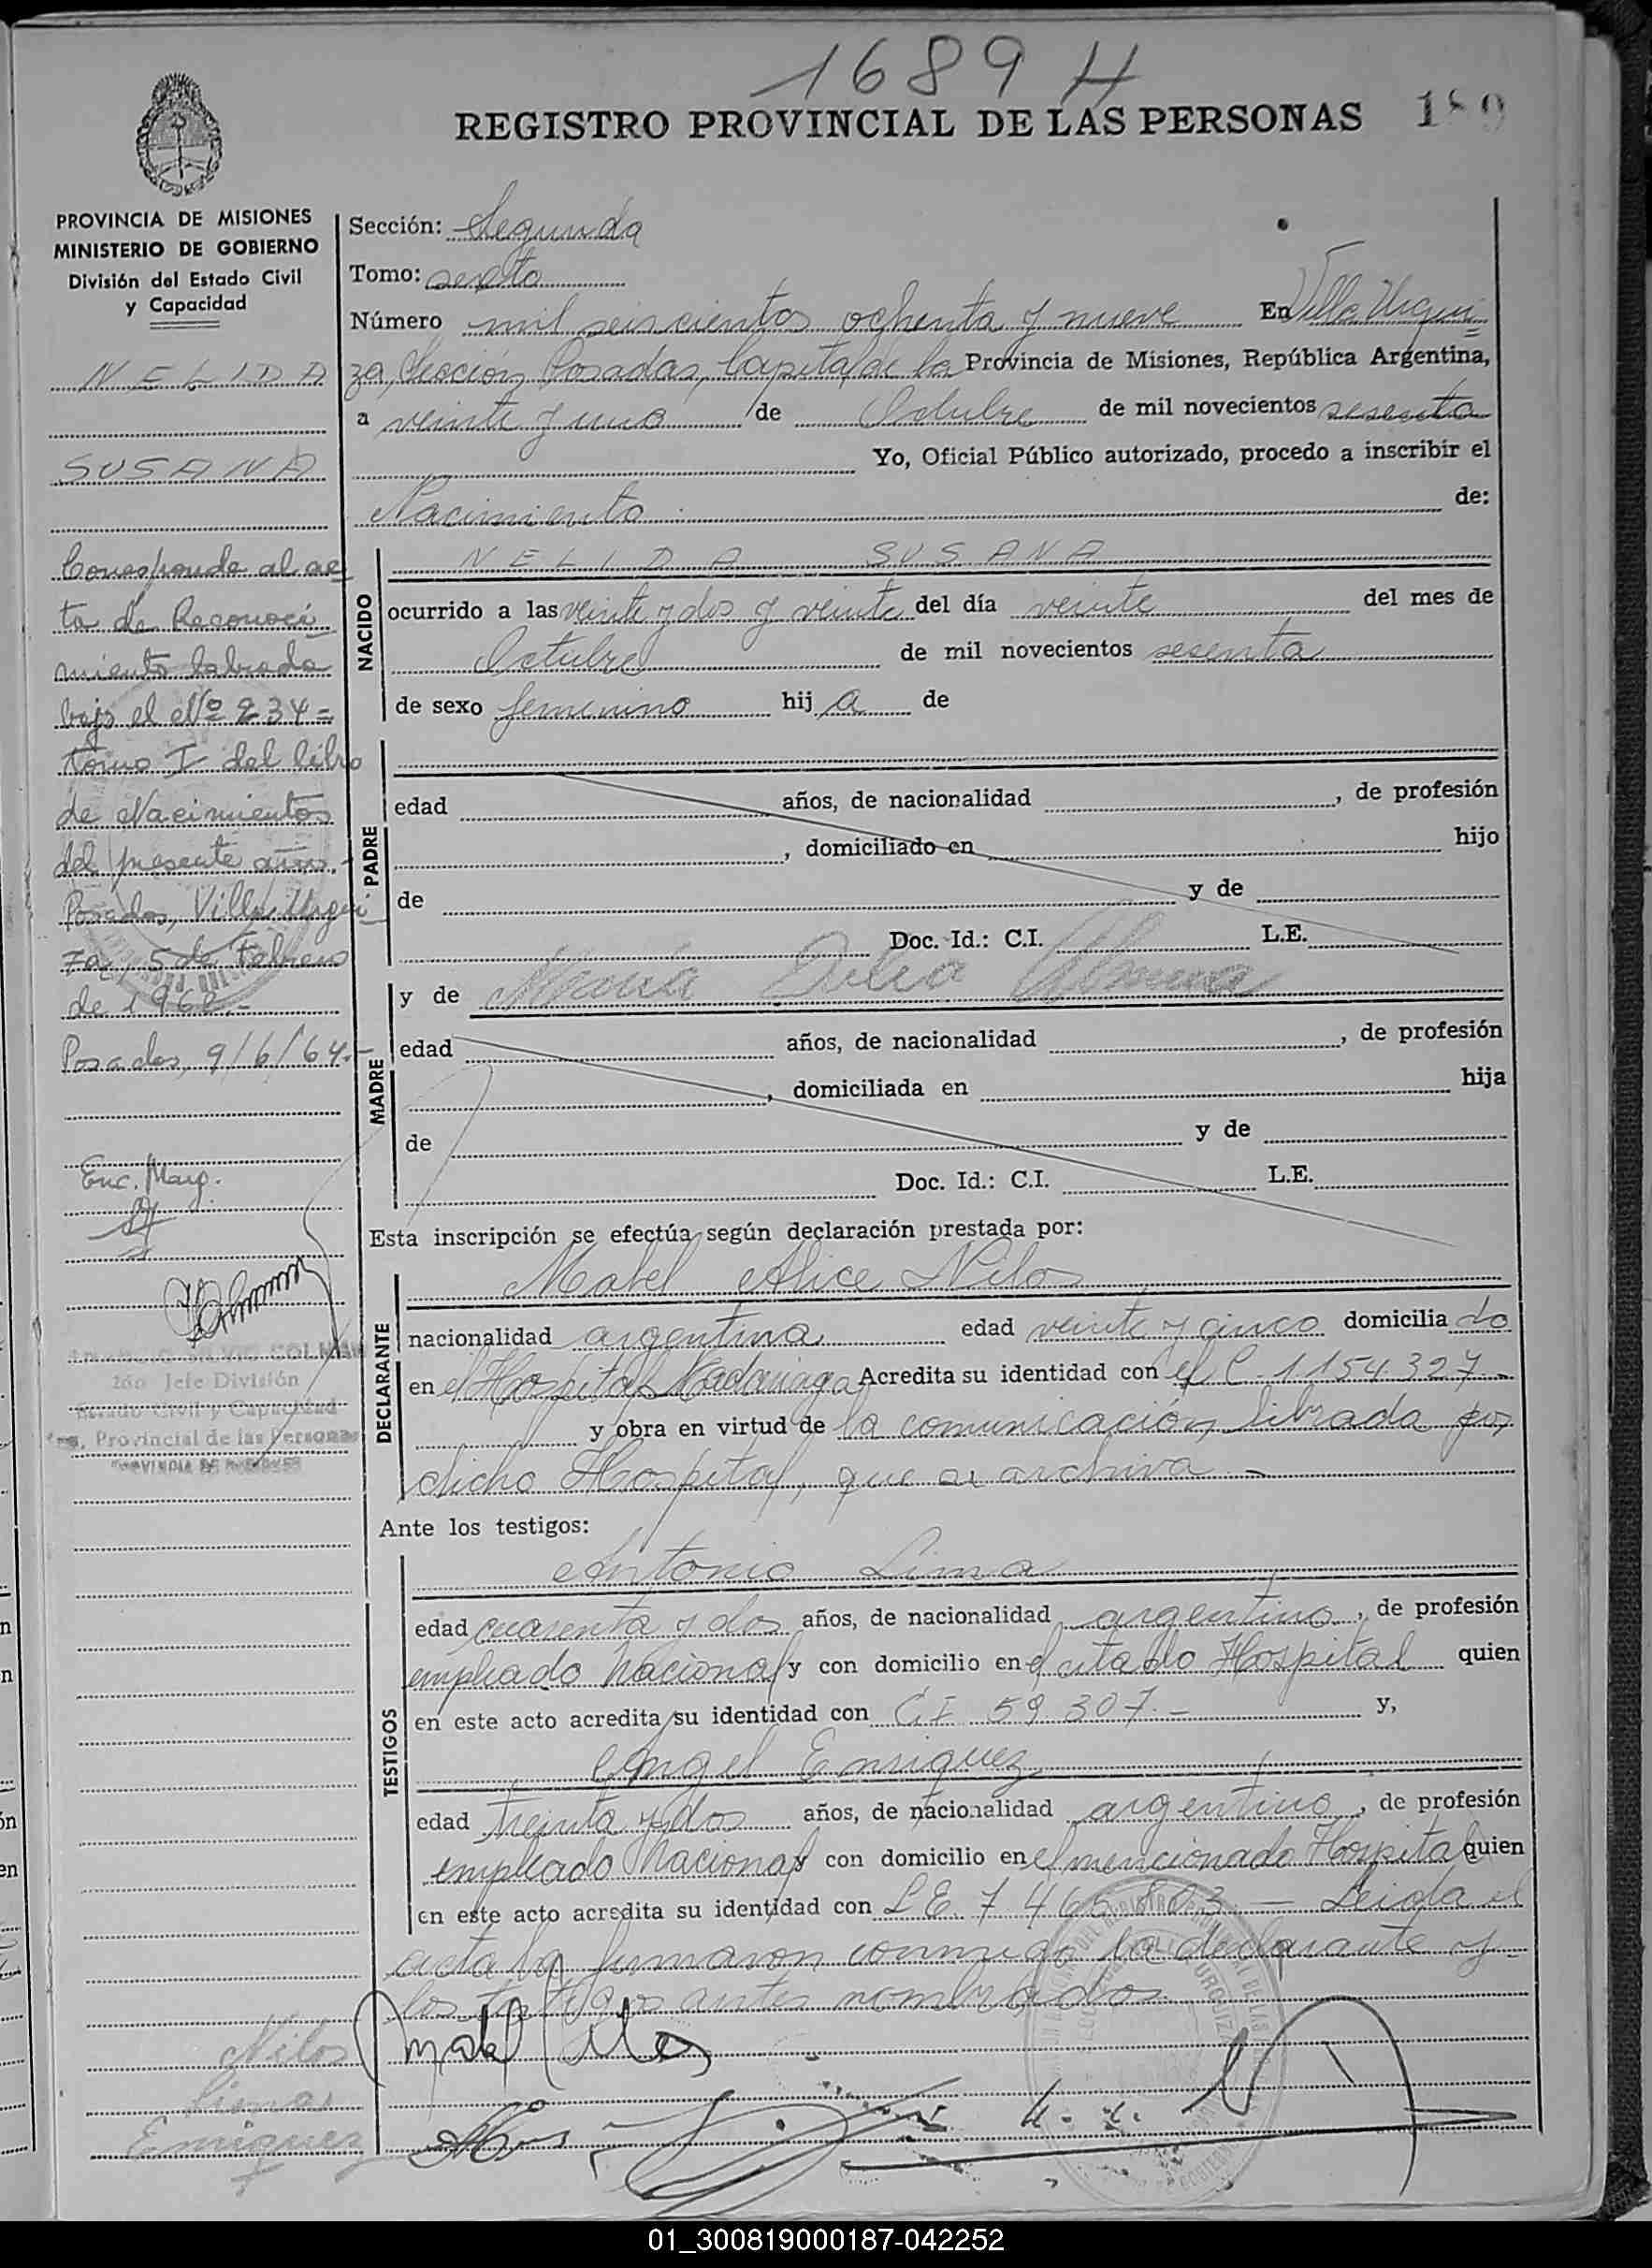 1689 H
REGISTRO PROVINCIAL DE LAS PERSONAS 189
PROVINCIA DE MISIONES
MINISTERIO DE GOBIERNO
División del Estado Civil
y Capacidad
NELIDA
SUSANA
Corresponde al ac
ta de Reconoci
miento labrada
bajo el Nº 234=
tomo I del libro
de Nacimientos
del presente año.-
Posadas, Villa Urqui
za, 5 de Febrero
de 1962.-
Posadas, 9/6/64.-
Enc. Marg.
2do Jefe División
Estado Civil y Capacidad
Reg. Provincial de las Personas
PROVINCIA DE MISIONES
Nilos
Limas
Enriquez
Sección: Segunda
Tomo: sexto
Número mil seiscientos ochenta y nueve En Villa Urqui=
za, Sección Posadas, Capital de la Provincia de Misiones, República Argentina,
a veinte y uno de Octubre de mil novecientos sesenta
Yo, Oficial Público autorizado, procedo a inscribir el
Nacimiento de:
NACIDO
NELIDA SUSANA
ocurrido a las veinte y dos y veinte del día veinte del mes de
Octubre de mil novecientos sesenta
de sexo femenino hij a de
PADRE
edad años, de nacionalidad , de profesión
, domiciliado en hijo
de y de
Doc. Id.: C.I. L.E.
MADRE
y de María
edad años, de nacionalidad , de profesión
, domiciliada en hija
de y de
Doc. Id.: C.I. L.E.
Esta inscripción se efectúa según declaración prestada por:
DECLARANTE
Mabel Alice Nilos
nacionalidad argentina edad veinte y cinco domicilia do
en el Hospital Madariaga Acredita su identidad con 1154.327.-
y obra en virtud de la comunicación librada por
dicho Hospital, que se archiva.-
Ante los testigos:
TESTIGOS
Antonio Lima
edad cuarenta y dos años, de nacionalidad argentino, de profesión
empleado nacional y con domicilio en el citado Hospital quien
en este acto acredita su identidad con C.I 59.307.- y,
Angel Enriquez
edad treinta y dos años, de nacionalidad argentino, de profesión
empleado nacional y con domicilio en el mencionado Hospital quien
en este acto acredita su identidad con L.E. 7.465.803.— Leida el
acta la firmaron conmigo la declarante y
los testigos antes nombrados.
Mabel Nilos
01_300819000187-042252